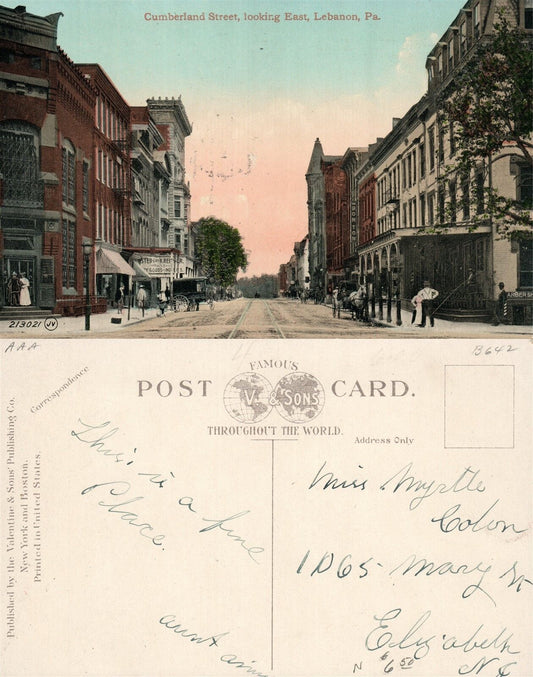 Cumberland Street, looking East, Lebanon, Pa.
213021 JV
AAA
B642
Correspondence
FAMOUS
POST CARD.
V. & SONS
THROUGHOUT THE WORLD.
Address Only
Published by the Valentine & Sons' Publishing Co.
New York and Boston.
Printed in United States.
This is a fine
Place.
aunt
Miss Myrtle
Colon
1065 Mary St
Elizabeth
N $6.50 NJ